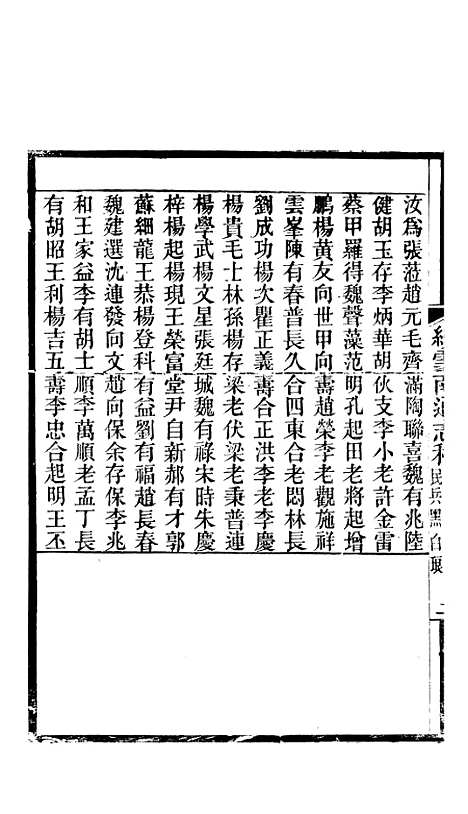 汝爲張蒞趙元毛齊滿陶聯喜魏有兆陸
健胡玉存李炳華胡伙支李小老許金雷
蔡甲羅得魏聲藻范明孔起田老將起增
鵬楊黃友向世甲向壽趙榮李老觀施祥
雲峯陳有春普長久合四東合老悶林長
劉成功楊次瞿正義壽合正洪李老李慶
楊貴毛士林孫楊存梁老伏梁老秉普連
楊學武楊文星張廷城魏有祿宋時朱慶
梓楊起楊現王榮富堂尹自新郝有才郭
蘇細龍王恭楊登科有益劉有福趙長春
魏建選沈連發向文趙向保余存保李兆
和王家益李有胡士順李萬順老孟丁長
有胡昭王利楊吉五壽李忠合起明王丕
雲南通志